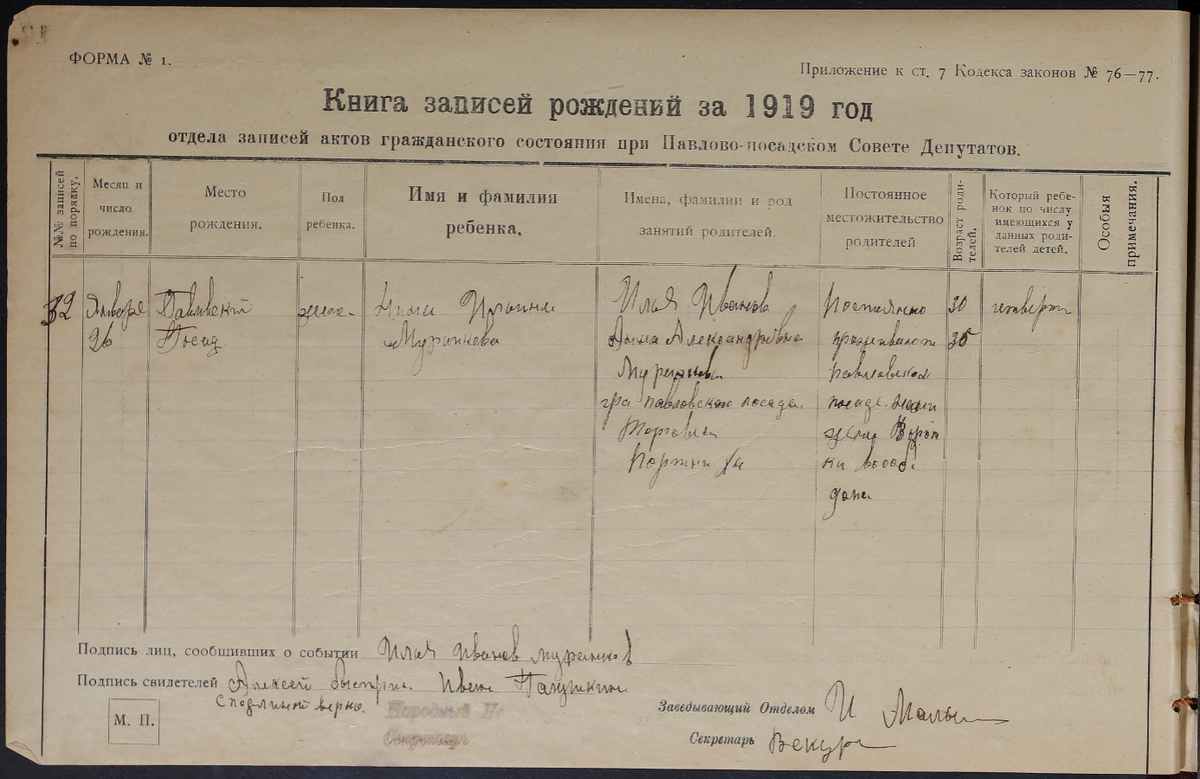 ФОРМА № 1.
Приложение к ст. 7 Кодекса законов № 76—77.
Книга записей рождений за 1919 год
отдела записей актов гражданского состояния при Павлово-посадском Совете Депутатов.
№№ записей по порядку.
Месяц и число рождения.
Место рождения.
Пол ребенка.
Имя и фамилия ребенка.
Имена, фамилии и род занятий родителей.
Постоянное местожительство родителей
Возраст родителей.
Который ребенок по числу имеющихся у данных родителей детей.
Особыя примечания.
32
Января
26
Павловский
Посад
женс.
Нина Ильина
Муранкова
Илья Иванов
Анна Александровна
гра павловского посада
Торговля
Постоянно
проживают
павловском
посаде
дома
30
35
четверти
Подпись лиц, сообщивших о событии Илья Иванов
Подпись свидетелей Алексей Иван
С подлинным верно.
М. П.
Народный
Секретарь
Заведывающий Отделом И
Секретарь